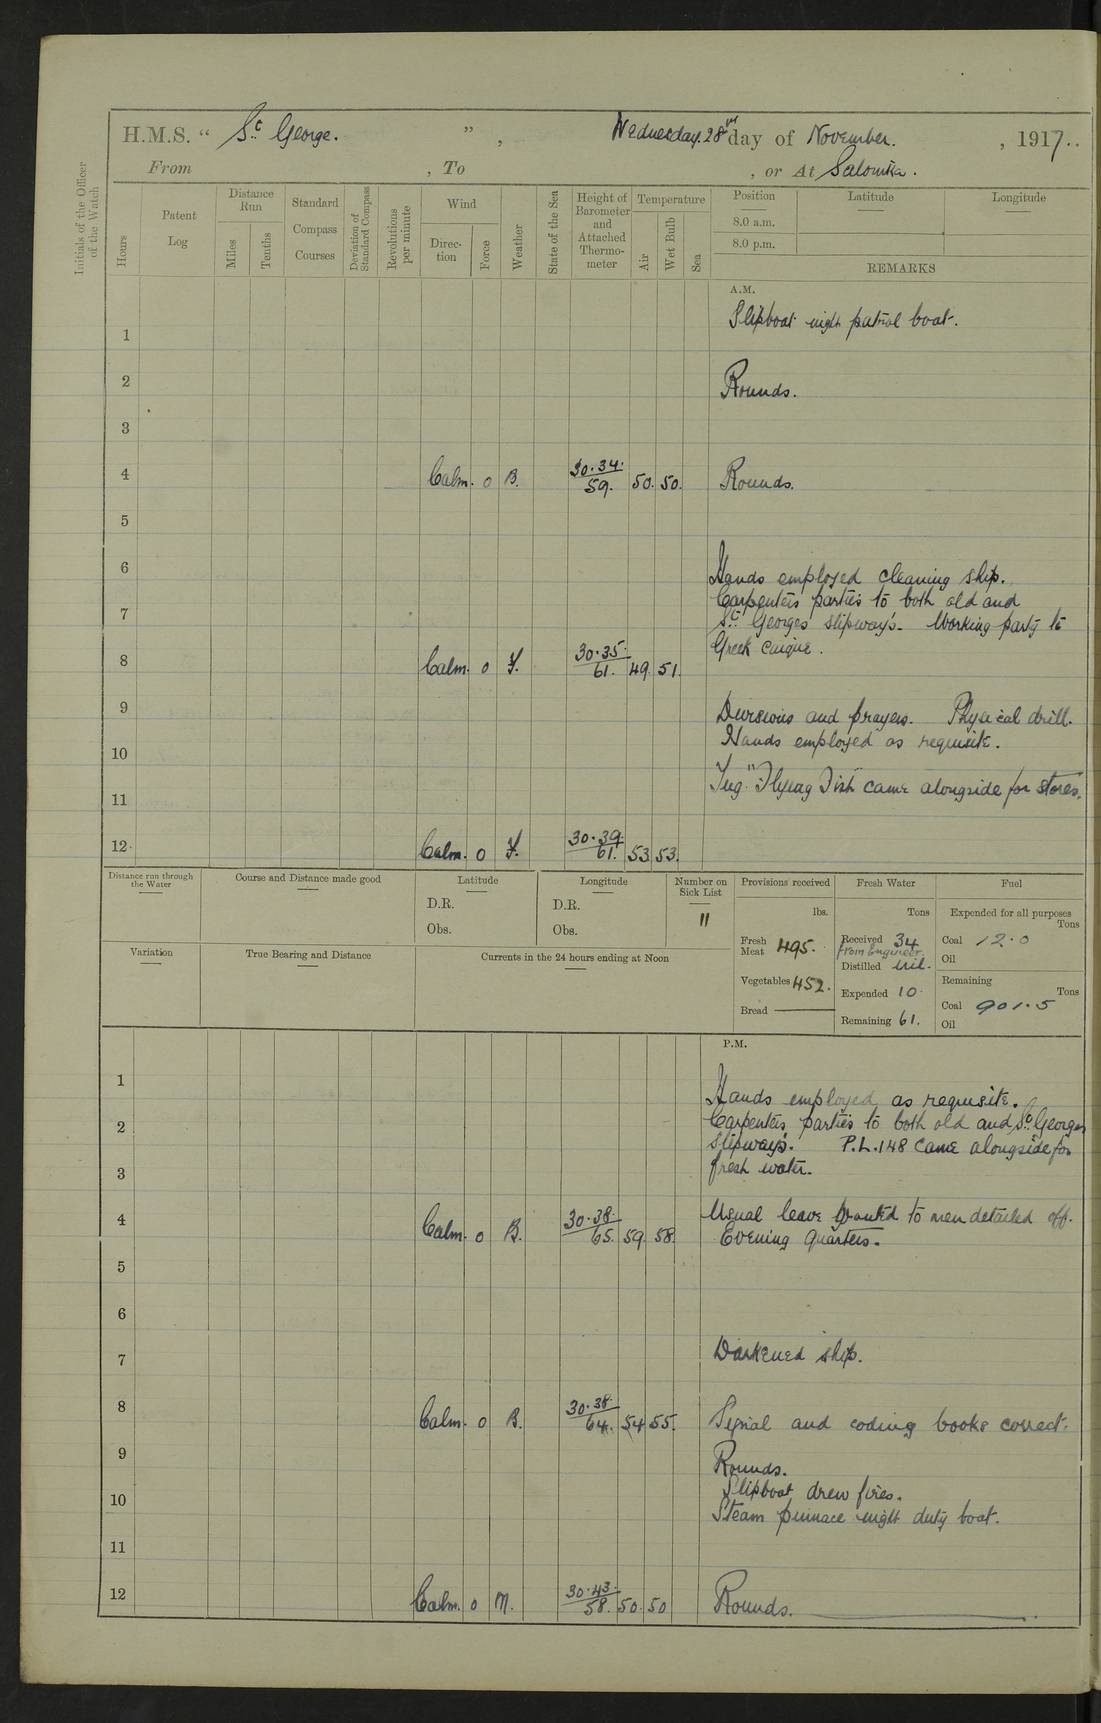 H.M.S. " St George. ", Wednesday. 28th day of November. , 1917..
From , To , or At Salonika.
Initials of the Officer of the Watch
Hours
Patent Log
Distance Run
Miles
Tenths
Standard Compass Courses
Deviation of Standard Compass
Revolutions per minute
Wind
Direction
Force
Weather
State of the Sea
Height of Barometer and Attached Thermometer
Temperature
Air
Wet Bulb
Sea
Position Latitude Longitude
8.0 a.m.
8.0 p.m.
REMARKS
A.M.
1 Slipboat night patrol boat.
2 Rounds.
3
4 Calm. 0 B. 30.34. 59. 50. 50. Rounds.
5
6 Hands employed cleaning ship.
Carpenters parties to both old and
7 St Georges slipway's. Working party to
Greek caique.
8 Calm. 0 F. 30.35 61. 49. 51.
9 Divisions and prayers. Physical drill.
Hands employed as requisite.
10
Tug "Flying Fish" came alongside for stores.
11
12 Calm. 0 F. 30.39. 61. 53. 53.
Distance run through the Water
Course and Distance made good
Latitude
D.R.
Obs.
Longitude
D.R.
Obs.
Number on Sick List
11
Provisions received
lbs.
Fresh Meat 495.
Vegetables 452.
Bread
Fresh Water
Tons
Received 34
from Engineer.
Distilled nil.
Expended 10
Remaining 61.
Fuel
Expended for all purposes
Tons
Coal 12.0
Oil
Remaining
Tons
Coal 901.5
Oil
Variation
True Bearing and Distance
Currents in the 24 hours ending at Noon
P.M.
1 Hands employed as requisite.
2 Carpenters parties to both old and St Georges
slipway's. P.L.148 came alongside for
3 fresh water.
4 Calm. 0 B. 30.38. 65. 59. 58. Usual leave granted to men detailed off.
Evening Quarters.
5
6
7 Darkened ship.
8 Calm. 0 B. 30.38. 64. 54 55. Signal and coding books correct.
9 Rounds.
Slipboat drew fires.
10 Steam pinnace night duty boat.
11
12 Calm. 0 M. 30.43. 58. 50. 50 Rounds.